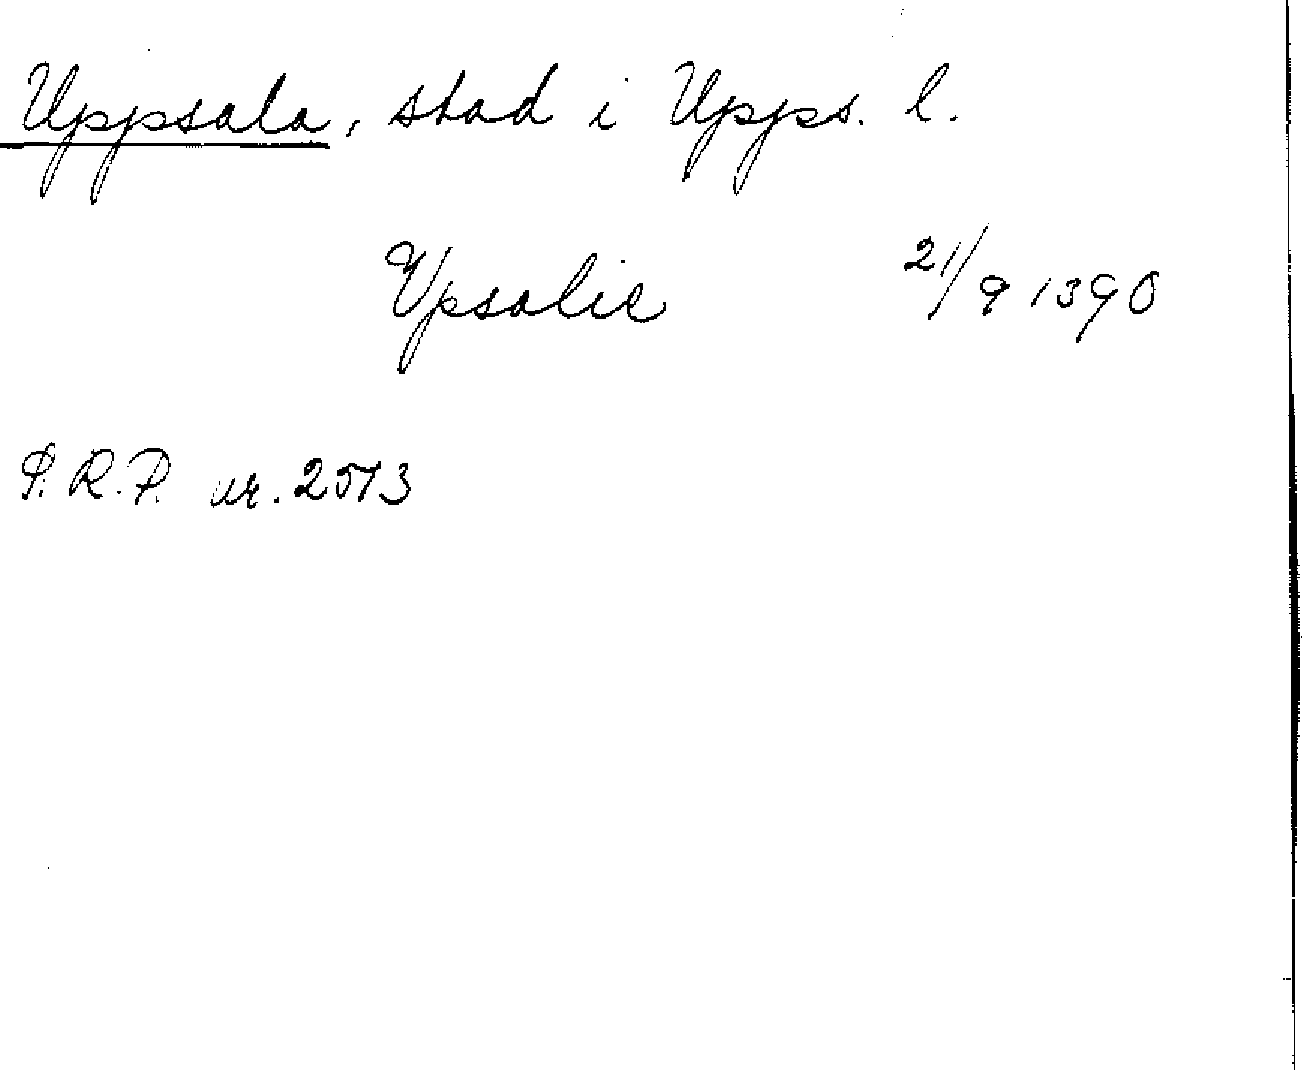 Uppsala, stad i Upps. l.
Vpsalie 21/9 1390
P.R.P. nr. 2513